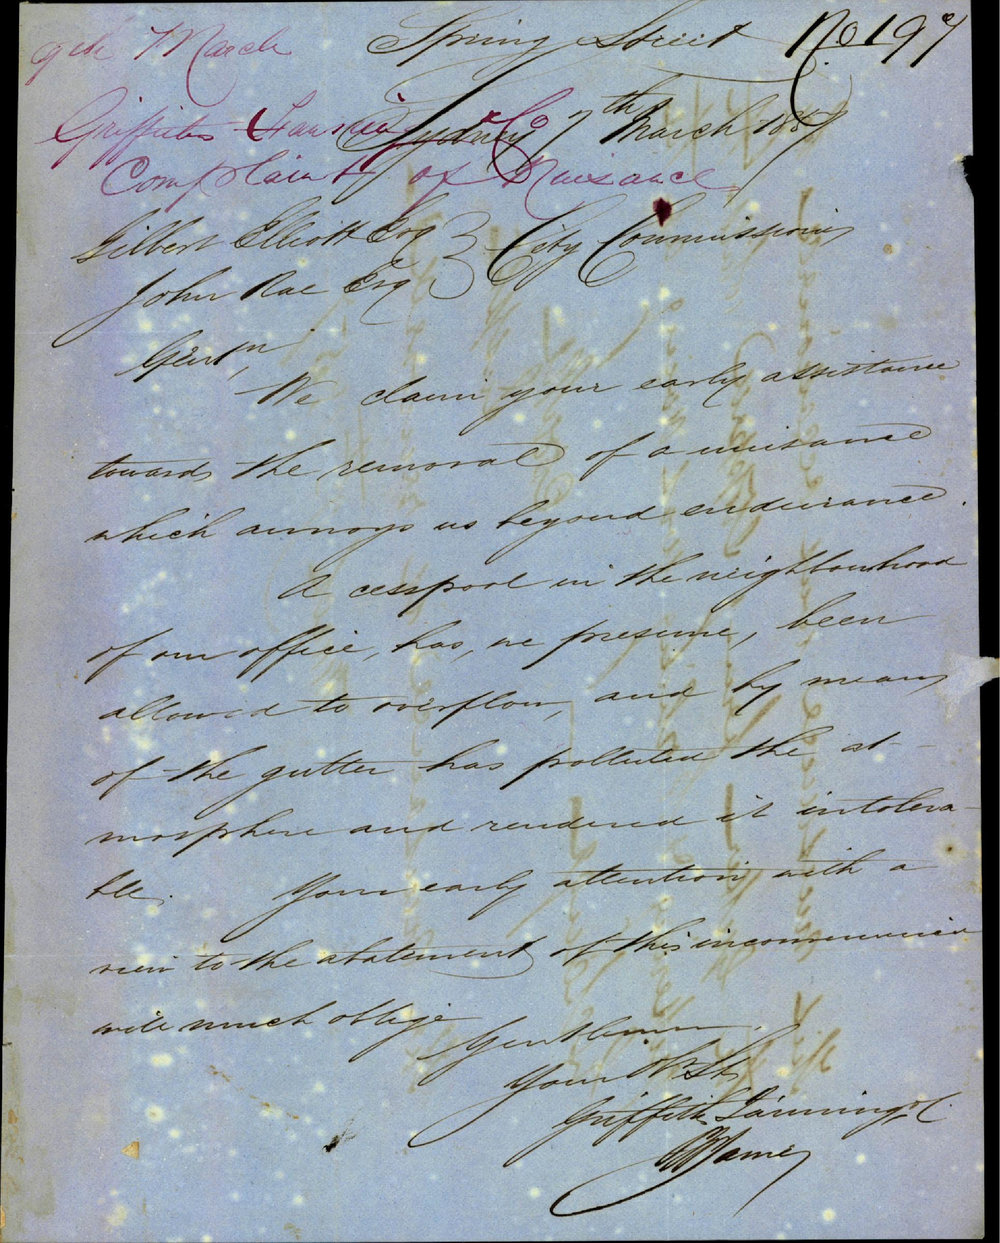 9th March
Spring Street No 197
Sydney 7th March 185
Griffiths Fanning & Co
Complaint of Nuisance
Gilbert Elliott Esq } City Commissioners
John Rae Esq
Gentn,
We claim your early assistance
towards the removal of a nuisance
which annoys us beyond endurance.
A cesspool in the neighbourhood
of our office, has, we presume, been
allowed to overflow, and by means
of the gutter has polluted the at-
mosphere and rendered it intolera-
ble. Your early attention with a
view to the abatement of this inconvenience
will much oblige
Gentlemen
Your Ob St
Griffiths Fanning & C